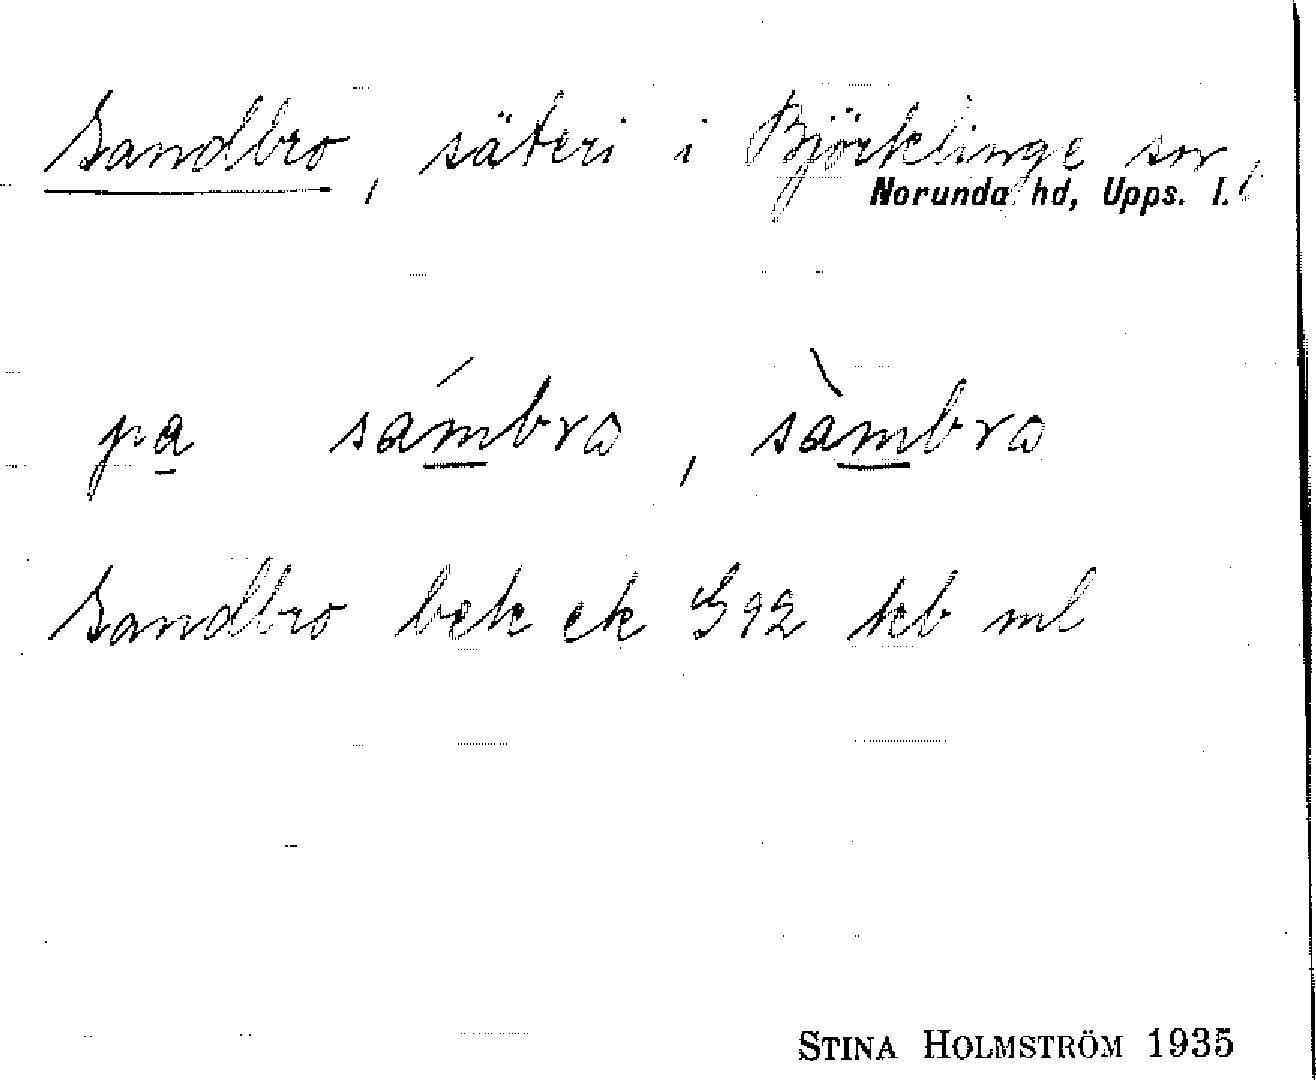 Sandbro, säteri i Björklinge sn,
Norunda hd, Upps. l.
pa sámbro, sàmbro
Sandbro bek ek S92 kb ml
STINA HOLMSTRÖM 1935